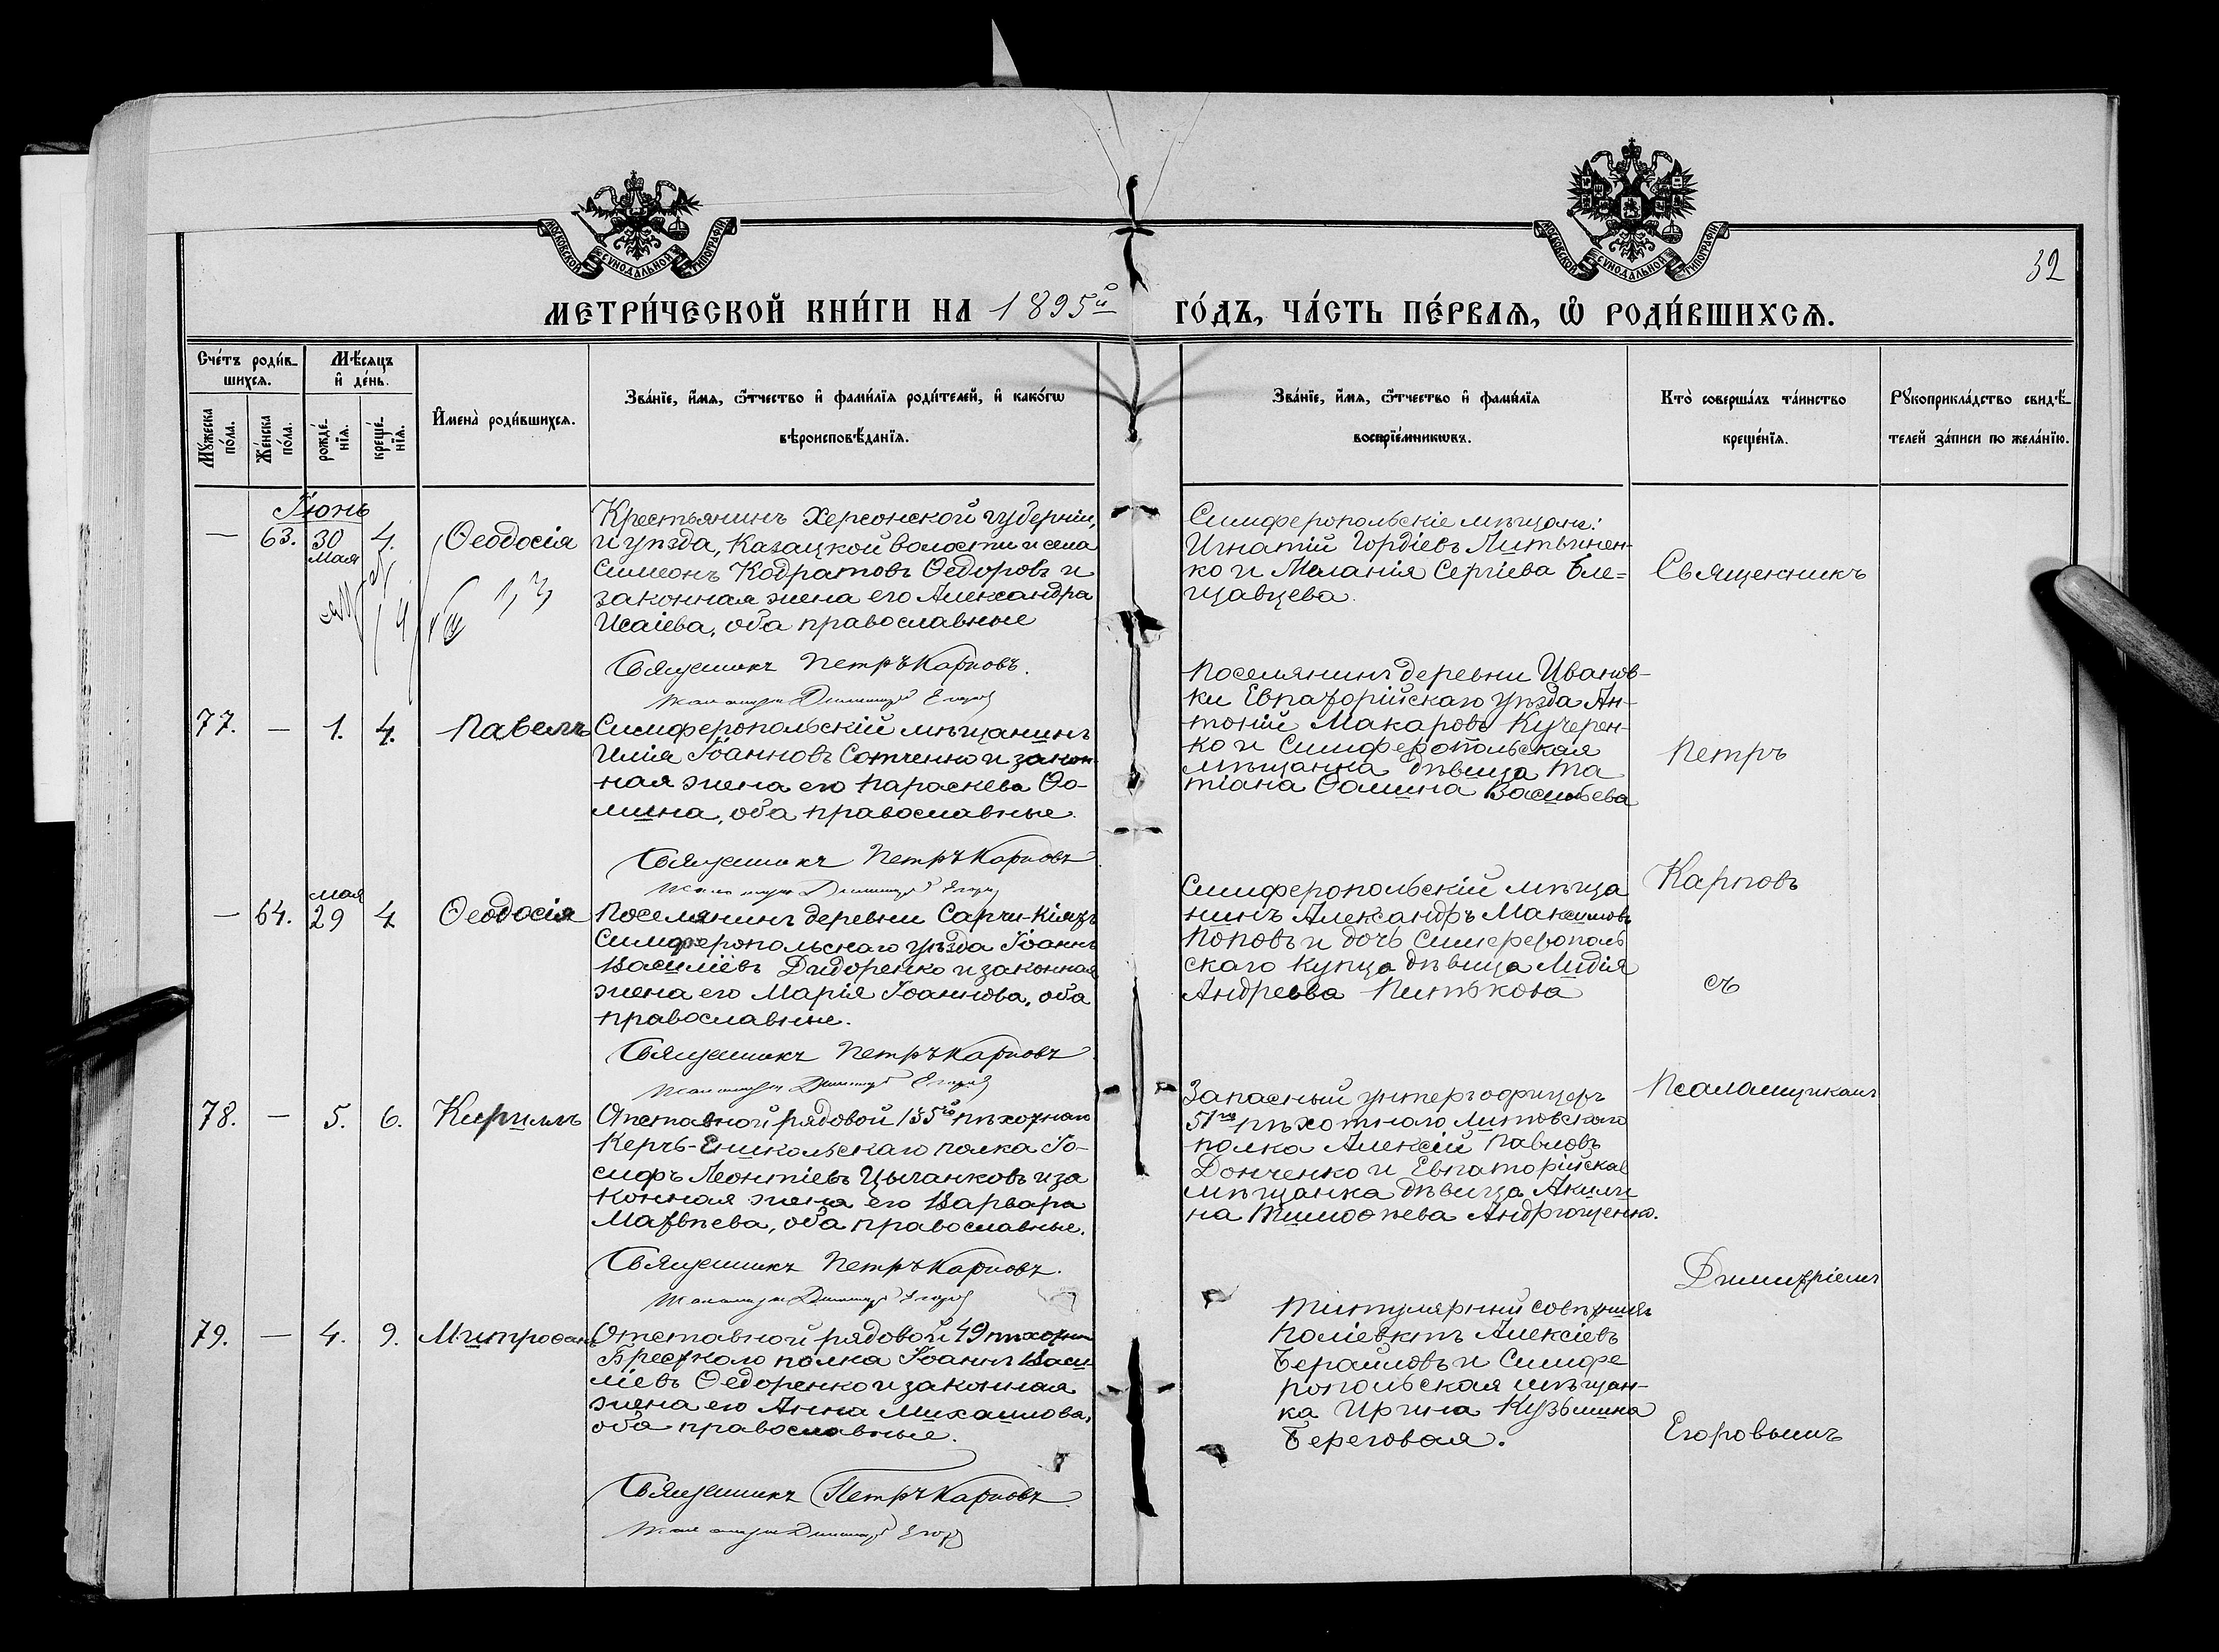 МОСКОВСКОЙ СѴНОДАЛЬНОЙ ТИПОГРАФІИ
МОСКОВСКОЙ СѴНОДАЛЬНОЙ ТИПОГРАФІИ
32
МЕТРИ́ЧЕСКОЙ КНИ́ГИ НА 1895й ГО́ДЪ, ЧА́СТЬ ПЕ́РВАѦ, Ѡ҆ РОДИ́ВШИХСѦ.
Сче́тъ роди́в-
шихсѧ.
Мꙋ́жеска по́ла.
Же́нска по́ла.
Мѣ́сѧцъ
и҆ де́нь.
рожде́-
нїѧ.
креще́-
нїѧ.
И҆мена̀ роди́вшихсѧ.
Зва́нїе, и҆́мѧ, ѻ҆́тчество и҆ фами́лїѧ роди́телей, и҆ како́гѡ
вѣроисповѣ́данїѧ.
Зва́нїе, и҆́мѧ, ѻ҆́тчество и҆ фами́лїѧ
воспрїе́мникѡвъ.
Кто̀ соверша́лъ та́инство
креще́нїѧ.
Рꙋкоприкла́дство свидѣ́-
телей за́писи по жела́нїю.
Іюнь
— 63. 30 Мая 4. Ѳеодосія
Крестьянинъ Херсонской губерніи,
и уѣзда, Казацкой волости и села
Симеонъ Кодратовъ Ѳедоровъ и
законная жена его Александра
Исаіева, оба православные
Священникъ Петръ Карповъ.
Симферопольскіе мѣщане:
Игнатій Гордіевъ Литвинен-
ко и Меланія Сергіева Бле=
щавцева.
Священникъ
77. — 1. 4. Павелъ
Симферопольскій мѣщанинъ
Илія Іоанновъ Сотченко и закон-
ная жена его Параскева Ѳо-
мина, оба православные.
Священникъ Петръ Карповъ
Поселянинъ деревни Иванов-
ки Евпаторійскаго уѣзда Ан-
тоній Макаровъ Кучерен-
ко и Симферопольская
мѣщанка дѣвица Та
тіана Ѳомина Васильева
Петръ
Карповъ
— 64. Мая 29 4. Ѳеодосія
Поселянинъ деревни Сарчи-Кіязъ
Симферопольскаго уѣзда Іоаннъ
Василіевъ Дидоренко и законная
жена его Марія Іоаннова, оба
православные.
Священникъ Петръ Карповъ
Симферопольскій мѣща
нинъ Александръ Максимовъ
Поповъ и дочь Симферополь
скаго купца дѣвица Лидія
Андреева Питькова
съ
Псаломщикомъ
78. — 5. 6. Кириллъ
Отставной рядовой 135го пѣхотнаго
Керчь-Еникольскаго полка Іо-
сифъ Леонтіевъ Цыганковъ и за
конная жена его Варвара
Матвѣева, оба православные.
Священникъ Петръ Карповъ.
Запасный унтеръ офицеръ
51го пѣхотнаго Литовскаго
полка Алексій Павловъ
Донченко и Евпаторійская
мѣщанка дѣвица Акили
на Тимоѳеева Андрющенко.
Димитріемъ
79. — 4. 9. Митрофанъ
Отставной рядовой 49 пѣхотн
Брестскаго полка Іоаннъ Васи
ліевъ Ѳедоренко и законная
жена его Анна Михаилова,
оба православные.
Священникъ Петръ Карповъ
Титулярный совѣтникъ
Поліевктъ Алексіевъ
Бераиловъ и Симфе
ропольская мѣщан-
ка Ирина Кузьмина
Береговая.
Егоровымъ